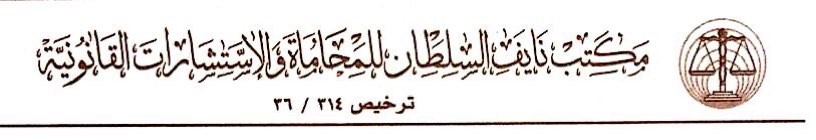 مكتب نايف السلطان للمحاماة والاستشارات القانونية
ترخيص ٣١٤ / ٣٦